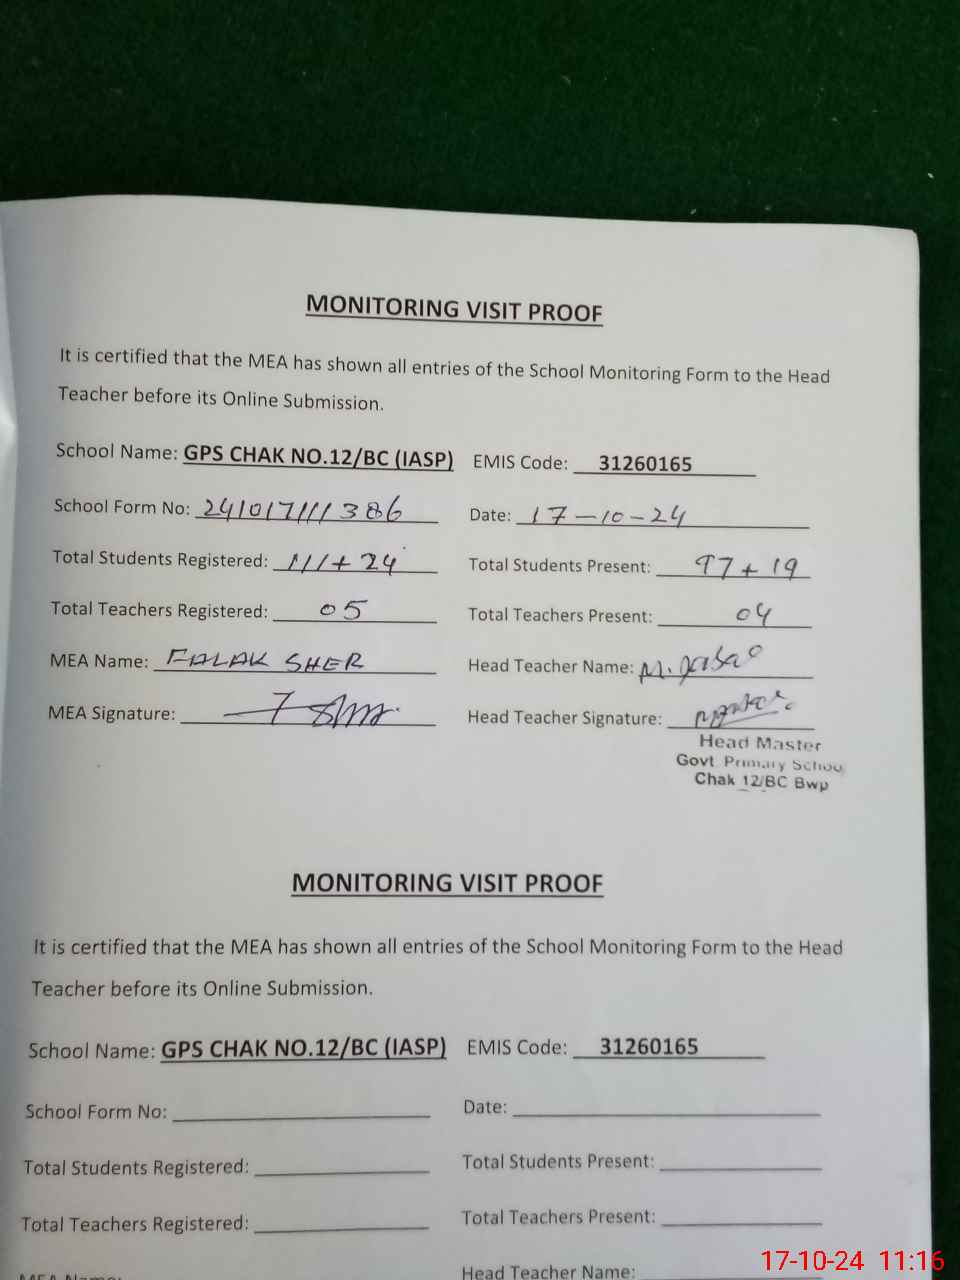 MONITORING VISIT PROOF
It is certified that the MEA has shown all entries of the School Monitoring Form to the Head
Teacher before its Online Submission.
School Name: GPS CHAK NO.12/BC (IASP) EMIS Code: 31260165
School Form No: 241017111386 Date: 17-10-24
Total Students Registered: 111+24 Total Students Present: 97+19
Total Teachers Registered: 05 Total Teachers Present: 04
MEA Name: FALAK SHER Head Teacher Name: M.
MEA Signature: Head Teacher Signature:
Head Master
Govt Primary School
Chak 12/BC Bwp
MONITORING VISIT PROOF
It is certified that the MEA has shown all entries of the School Monitoring Form to the Head
Teacher before its Online Submission.
School Name: GPS CHAK NO.12/BC (IASP) EMIS Code: 31260165
School Form No: Date:
Total Students Registered: Total Students Present:
Total Teachers Registered: Total Teachers Present:
MEA Name: Head Teacher Name:
17-10-24 11:16